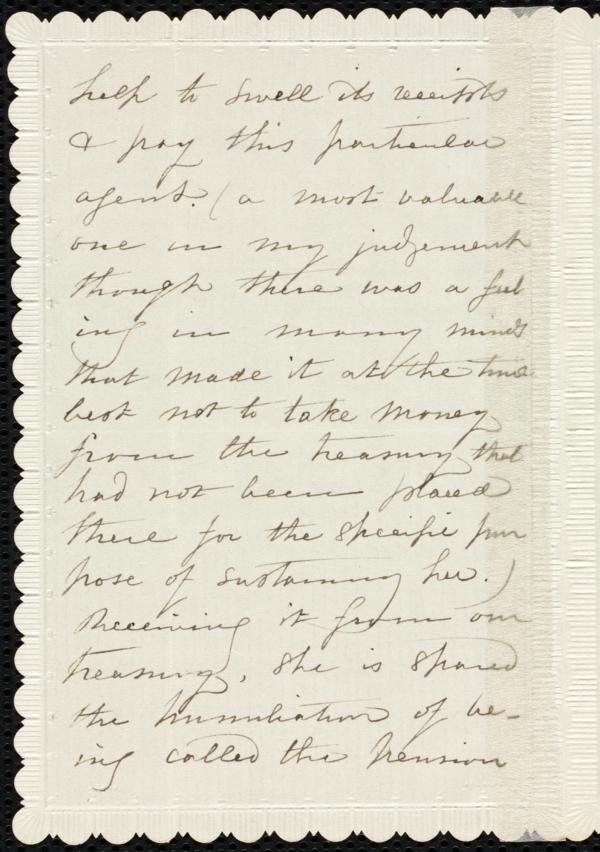 help to swell its receipts
& pay this particular
agent. (a most valuable
one in my judgement
though there was a feel
ing in many minds
that made it at the time
best not to take money
from the treasury that
had not been placed
there for the specific pur
pose of sustaining her.)
Receiving it from our
treasury, she is spared
the humiliation of be-
ing called the pension